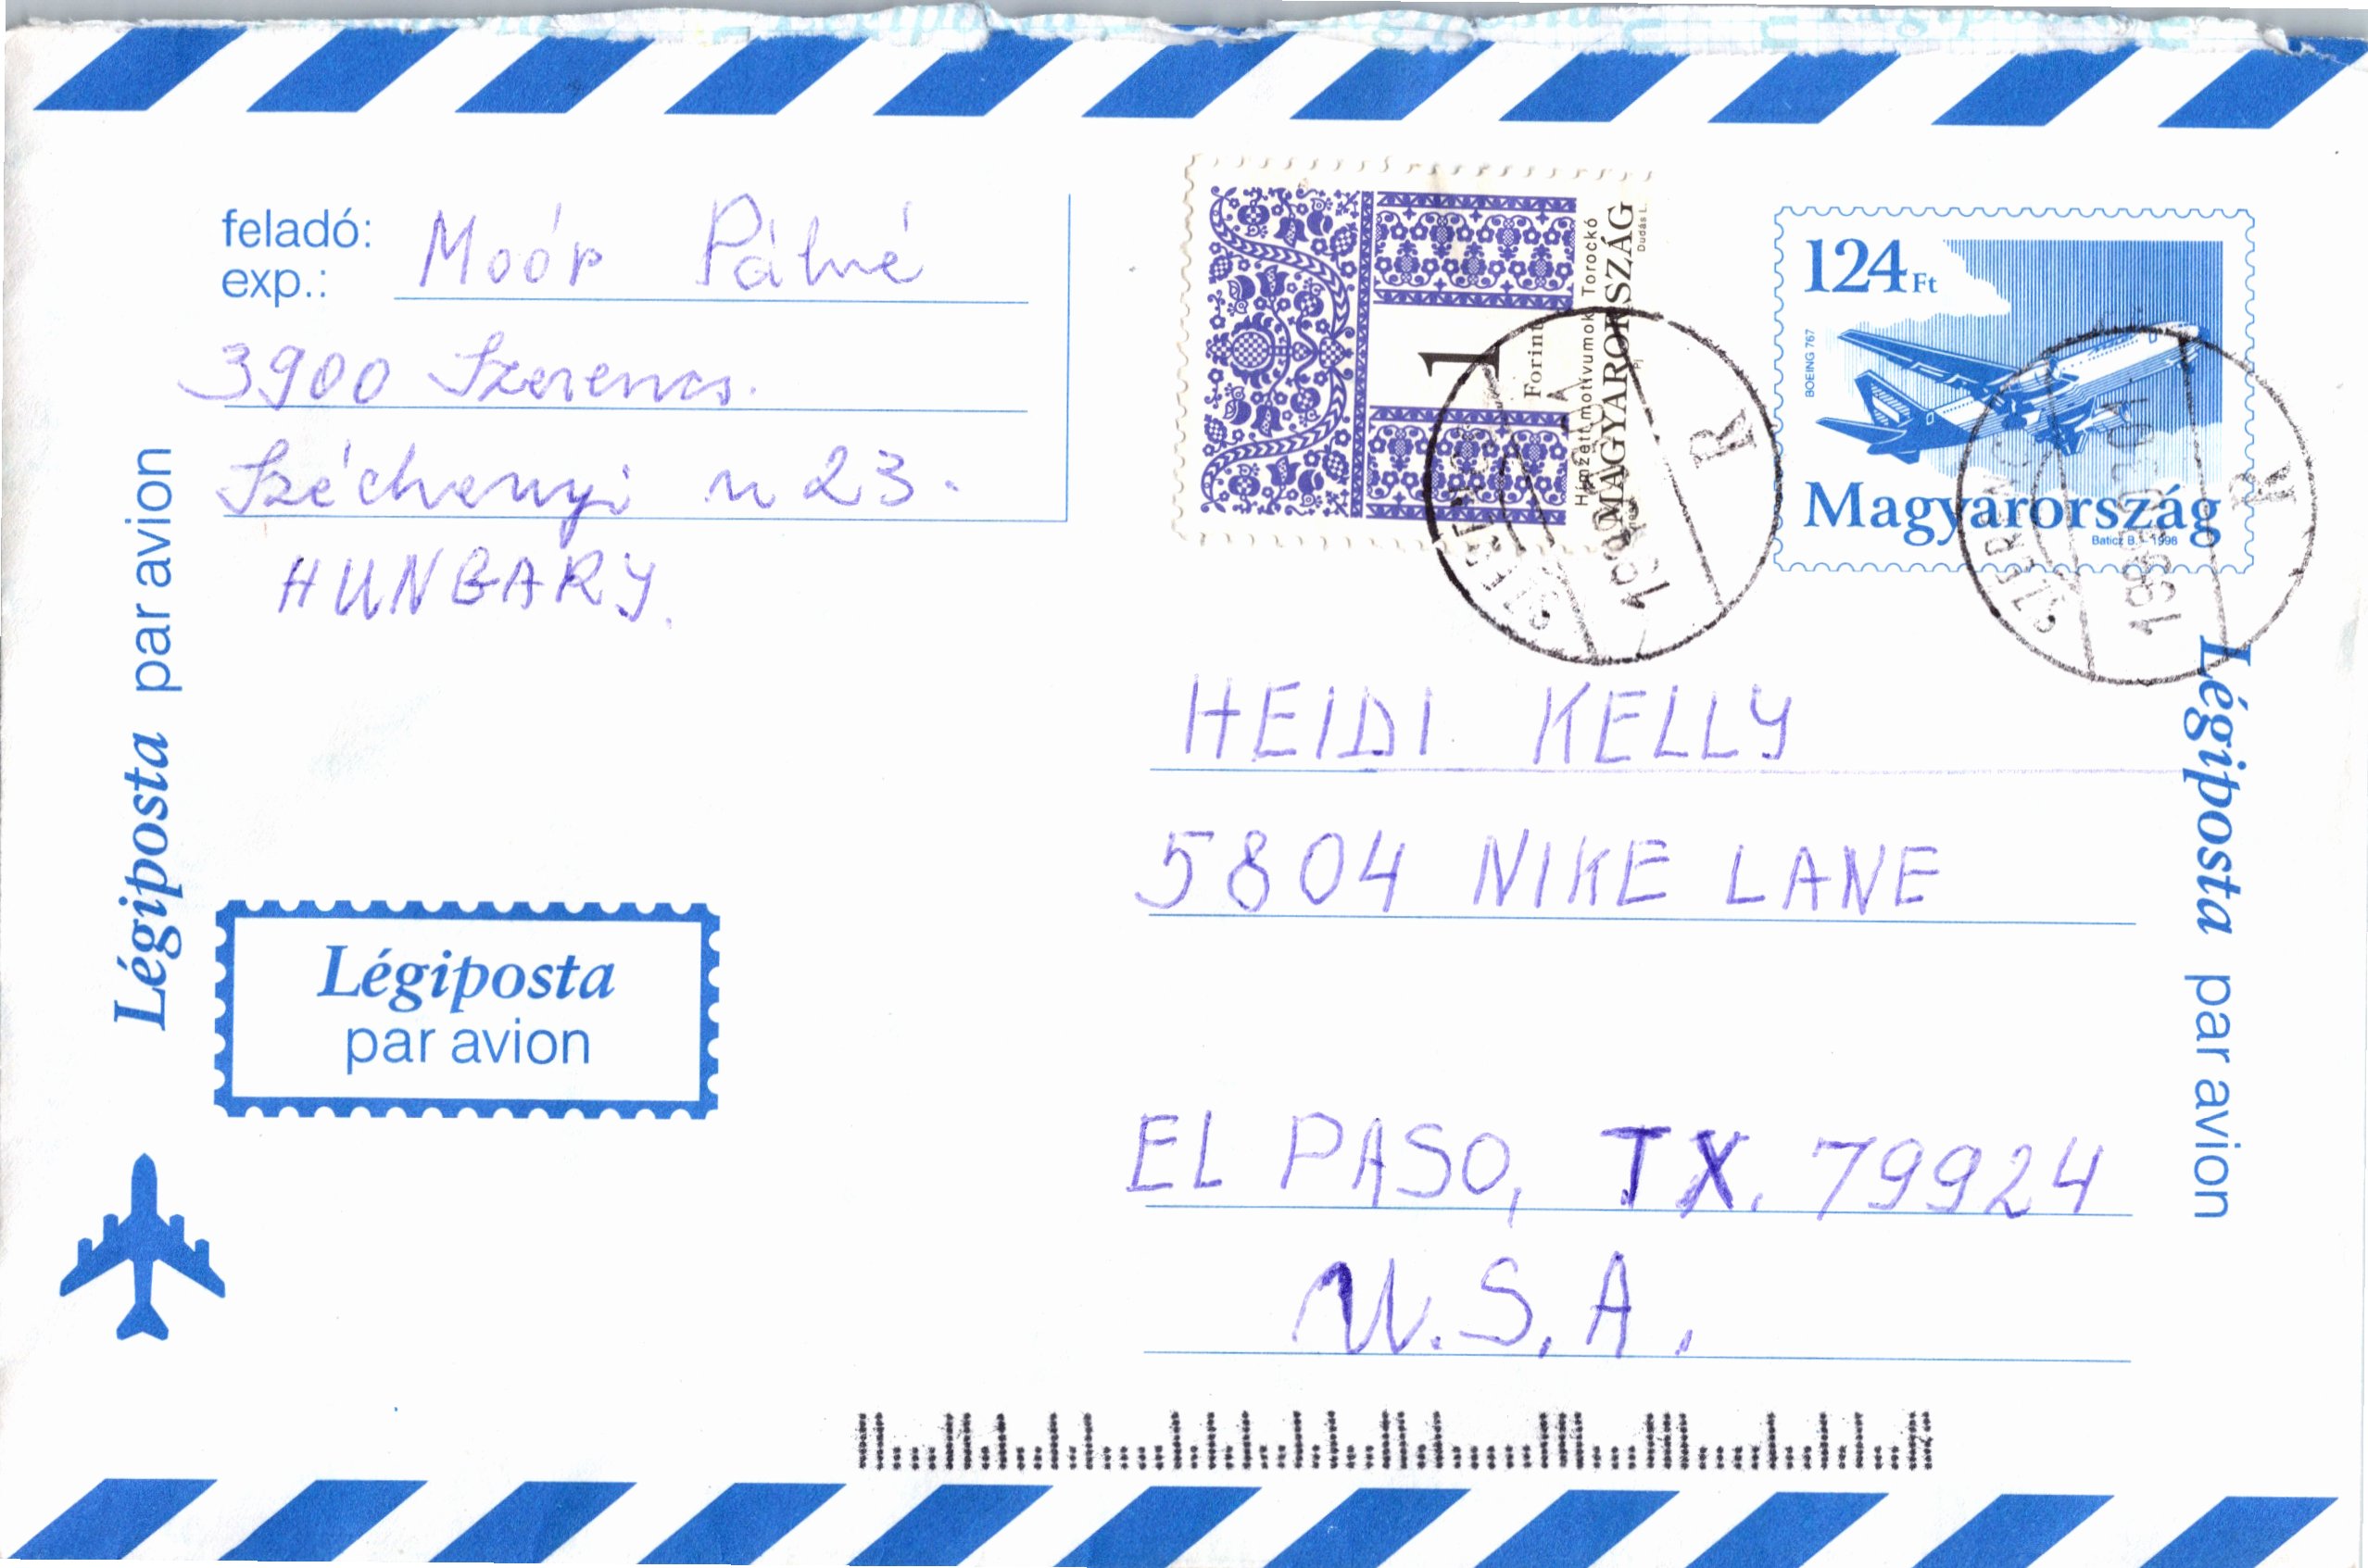 feladó: Moór Pálné
exp.:
3900 Szerencs.
Széchenyi u 23.
HUNGARY.
Légiposta par avion
1
Forint
Hímzett motívumok Torockó
MAGYARORSZÁG
Dudás L.
124 Ft
BOEING 767
Magyarország
Baticz B. 1998
SZERENCS
R
R
HEIDI KELLY
5804 NIKE LANE
EL PASO, TX. 79924
U.S.A.
Légiposta
par avion
Légiposta par avion